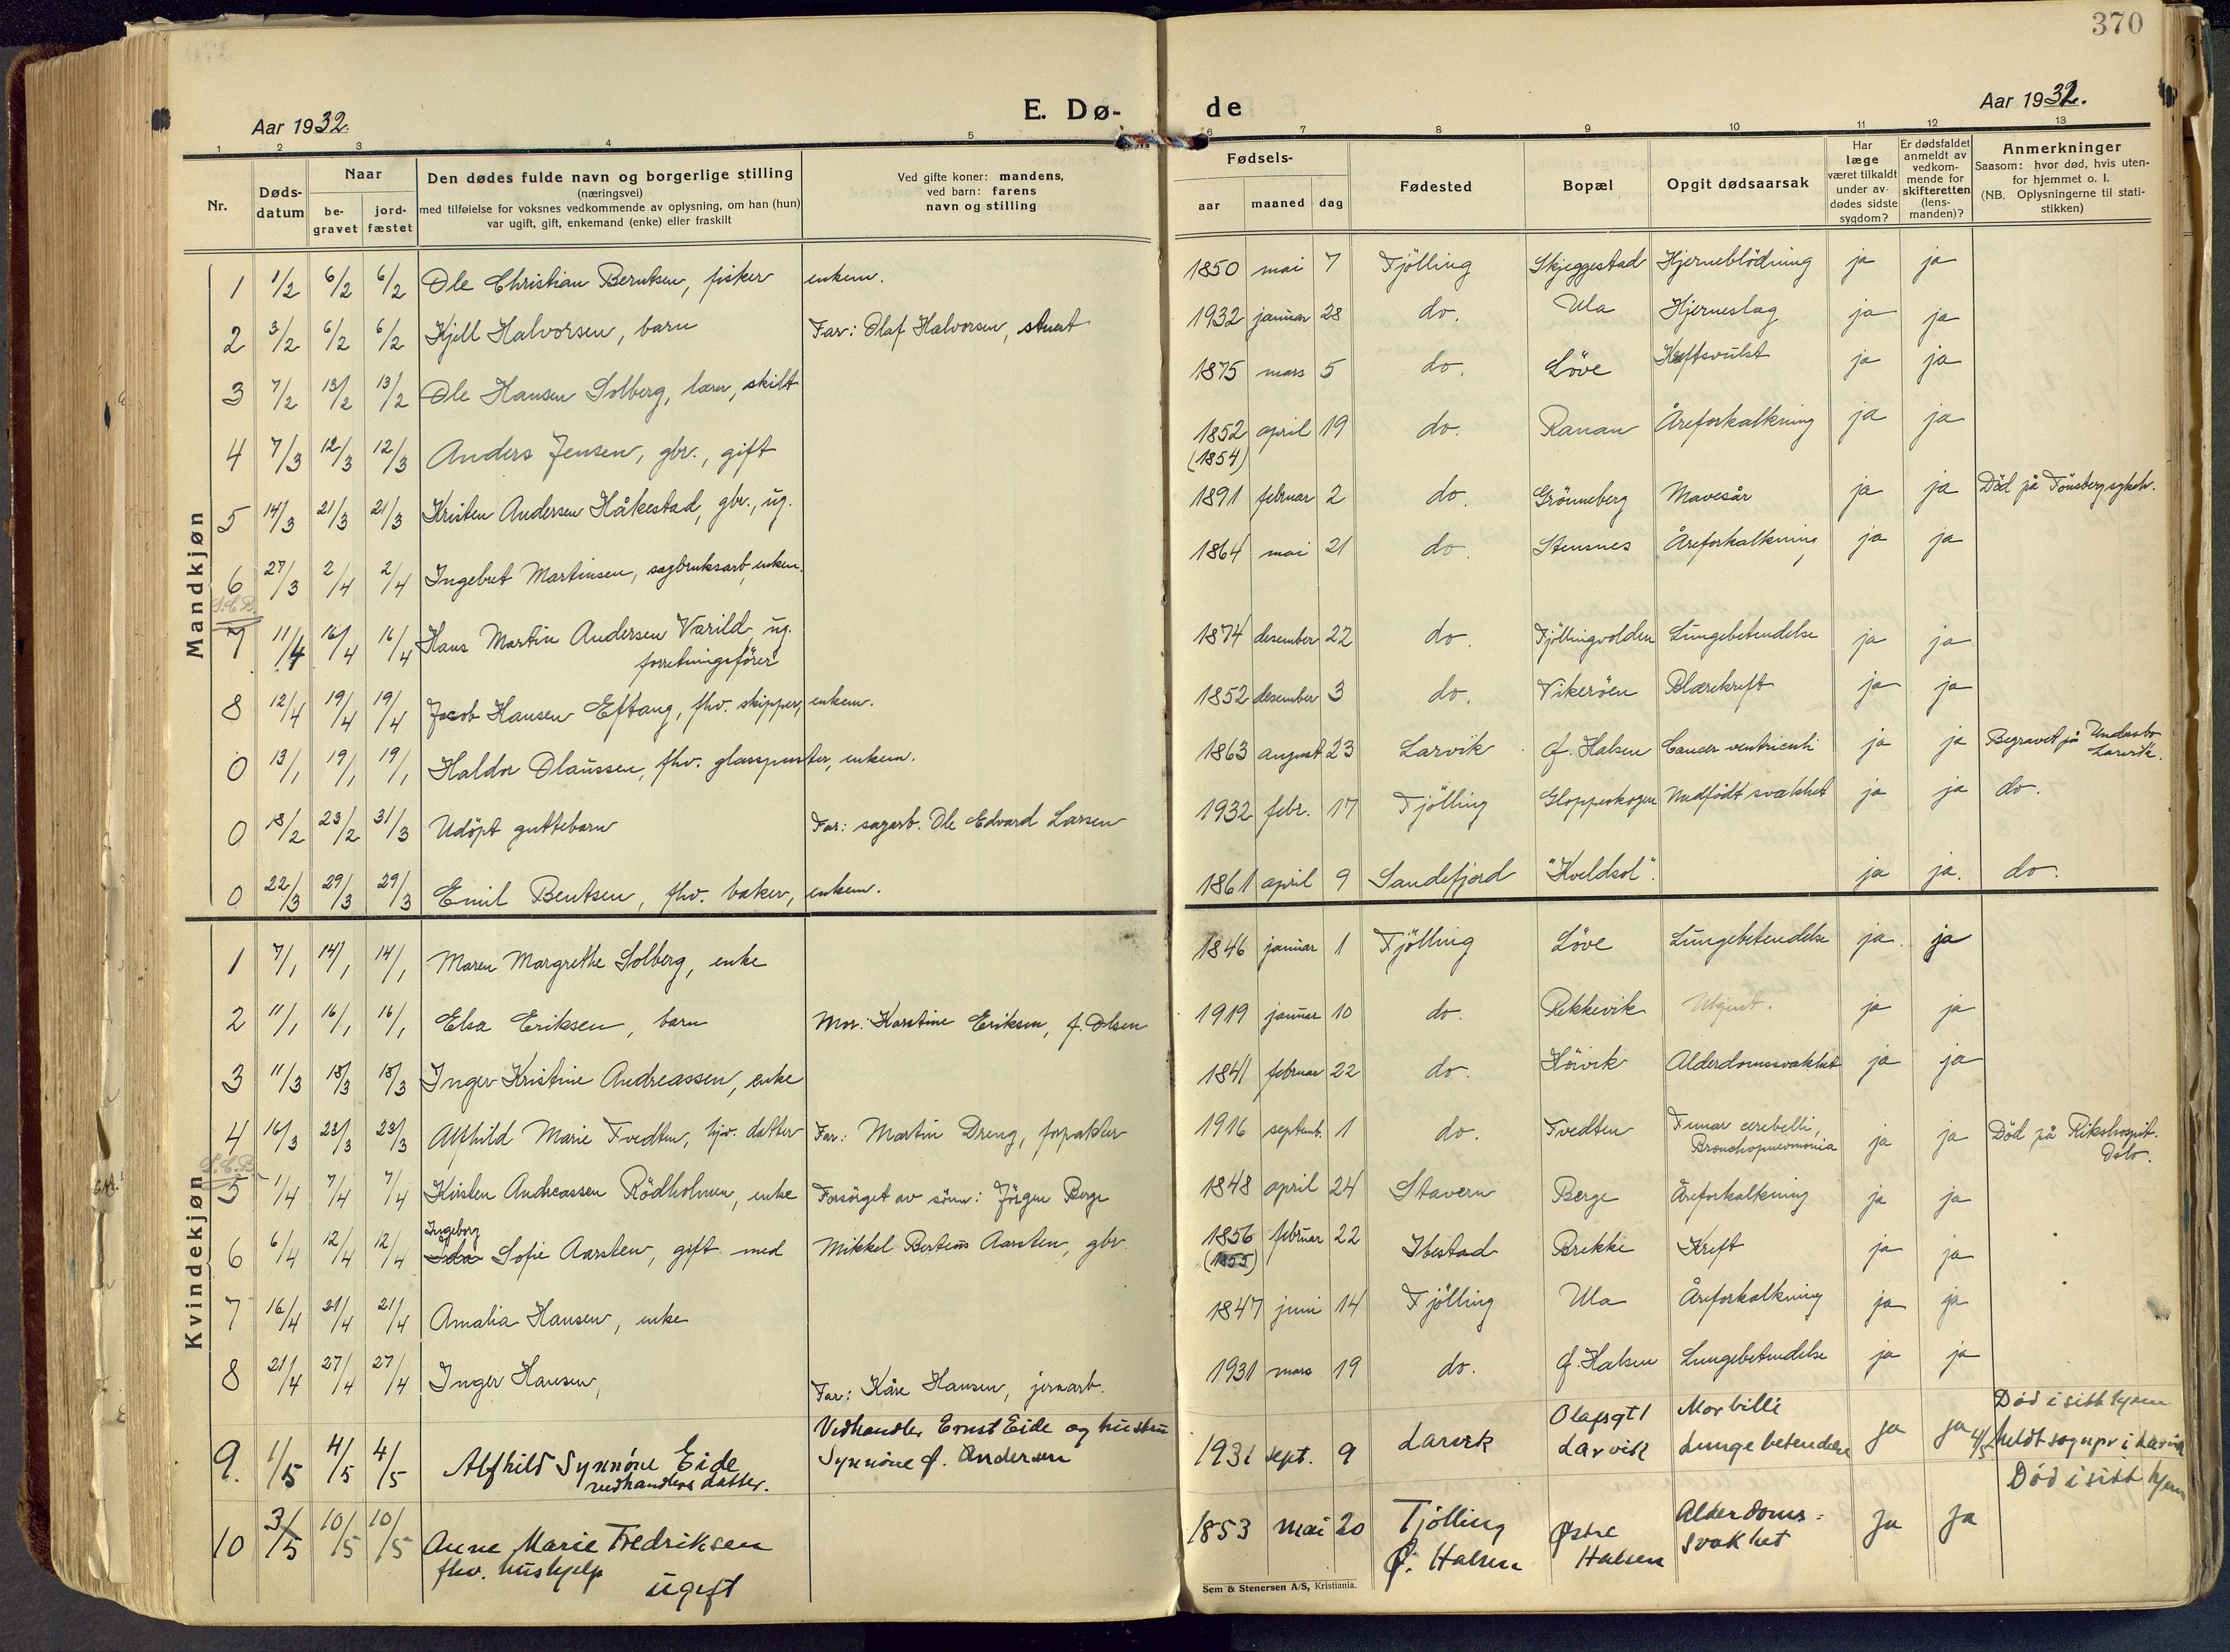 370
Aar 1932.
E. Dø-
de
Aar 1932.
1 2 3 4 5 6 7 8 9 10 11 12 13
Nr.
Døds-datum
Naar
be-gravet
jord-fæstet
Den dødes fulde navn og borgerlige stilling
(næringsvei)
med tilføielse for voksnes vedkommende av oplysning, om han (hun)
var ugift, gift, enkemand (enke) eller fraskilt
Ved gifte koner: mandens,
ved barn: farens
navn og stilling
Fødsels-
aar
maaned
dag
Fødested
Bopæl
Opgit dødsaarsak
Har læge været tilkaldt under av-dødes sidste sygdom?
Er dødsfaldet anmeldt av vedkom-mende for skifteretten (lens-manden)?
Anmerkninger
Saasom: hvor død, hvis uten-
for hjemmet o. l.
(NB. Oplysningerne til stati-
stikken)
Mandkjøn
1 1/2 6/2 6/2 Ole Christian Berntsen, fisker enkem. 1850 mai 7 Tjölling Skjeggestad Hjerneblödning ja ja
2 3/2 6/2 6/2 Kjell Halvorsen, barn Far: Olaf Halvorsen, stuert 1932 januar 28 do. Ula Hjerneslag ja ja
3 7/2 13/2 13/2 Ole Hansen Solberg, lærer, skilt 1875 mars 5 do. Löve Kreftsvulst ja ja
4 7/3 12/3 12/3 Anders Jensen, gbr., gift 1852 april 19 do. Rauan Åreforkalkning ja ja
(1854)
5 14/3 21/3 21/3 Kristen Andersen Håkestad, gbr., ug. 1891 februar 2 do. Grönneberg Mavesår ja ja Död på Tönsberg sykeh.
6 27/3 2/4 2/4 Ingebret Martinsen, sagbruksarb, enkem. 1864 mai 21 do. Stensnes Åreforkalkning ja ja
S.C.B.
7 11/4 16/4 16/4 Hans Martin Andersen Varild, ug. 1874 desember 22 do. Tjöllingvolden Lungebetendelse ja ja
forretningsförer
8 12/4 19/4 19/4 Jacob Hansen Eftang, fhv. skipper, enkem. 1852 desember 3 do. Vikeröen Blærekreft ja ja
0 13/1 19/1 19/1 Haldor Olaussen, fhv. glasspuster, enkem. 1863 august 23 Larvik Ø. Halsen Cancer ventriculi ja ja Begravet på Undersbo
Larvik.
0 18/2 23/2 31/3 Udöpt guttebarn Far: sagarb. Ole Edvard Larsen 1932 febr. 17 Tjölling Gloppeskogen Medfödt svakhet ja ja do.
0 22/3 29/3 29/3 Emil Bentsen, fhv. baker, enkem. 1861 april 9 Sandefjord "Kveldsol". ja ja. do.
Kvindekjøn
1 7/1 14/1 14/1 Maren Margrethe Solberg, enke 1846 januar 1 Tjölling Löve Lungebetendelse ja. ja
2 11/1 16/1 16/1 Elsa Eriksen, barn Mor: Karstine Eriksen, f. Olsen 1919 januar 10 do. Rekkevik ja ja
3 11/3 18/3 18/3 Inger Kristine Andreassen, enke 1841 februar 22 do. Höivik Alderdomssvakhet ja ja
4 16/3 23/3 23/3 Alfhild Marie Tvedten, hjv. datter Far: Martin Dreng, forpakter 1916 septemb. 1 do. Tvedten cerebelli, ja ja Död på Rikshospit.
Bronchopneumonia Oslo.
S.C.B.
5 1/4 7/4 7/4 Kirsten Andreassen Rödholmen, enke Forsörget av sönn: Jörgen Berge 1848 april 24 Stavern Berge Åreforkalkning ja ja
Ingeborg
6 6/4 12/4 12/4 Ida Sofie Aarsten, gift med Mikkel Berteus Aarsten, gbr. 1856 februar 22 Ibestad Brekke Kreft ja ja
(1855)
7 16/4 21/4 21/4 Amalia Hansen, enke 1847 juni 14 Tjölling Ula Åreforkalkning ja ja
8 21/4 27/4 27/4 Inger Hansen, Far: Kåre Hansen, jernarb. 1931 mars 19 do. Ø. Halsen Lungebetendelse ja ja
9. 1/5 4/5 4/5 Alfhild Synnöve Eide Vedhandler Ernst Eide og hustru 1931 sept. 9 Larvik Olafsgt 1 Morbilli ja ja Död i sitt hjem
vedhandlers datter. Synnöve f. Andersen Larvik Lungebetendelse 4/5 meldt sognepr i Larvik
10 3/5 10/5 10/5 Anne Marie Fredriksen 1853 mai 20 Tjölling Østre Alderdoms- ja ja Död i sitt hjem
fhv. hushjelp Ø. Halsen Halsen svakhet
ugift
Sem & Stenersen A/S, Kristiania.